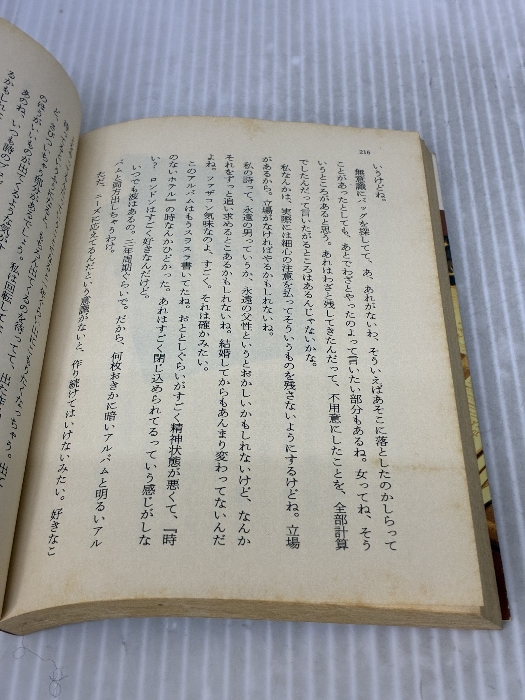 216
いうけどね。
無意識にバッグを探してて、あ、あれがないわ、そういえばあそこに落としたのかしらって
ことがあったとしても、あとでわざとやったのよって言いたい部分もあるね。女ってね、そう
いうところがあると思う。あれはわざと残してきたんだって、不用意にしたことを、全部計算
でしたんだって言いたがるところはあるんじゃないかな。
私なんかは、実際には細心の注意を払ってそういうものを残さないようにするけどね。立場
があるから。立場がなければやるかもしれないね。
私の詩って、永遠の男っていうか、永遠の父性というとおかしいかもしれないけど、なんか
それをずっと追い求めるとこあるかもしれないね。結婚してからもあんまり変わってないんだ
よね。ファザコン気味なのよ、すごく。それは確かみたい。
このアルバムはもうスラスラ書いてたね。おととしぐらいがすごく精神状態が悪くて、『時
のないホテル』の時なんかひどかった。あれはすごく閉じ込められてるっていう感じがしな
い？ ロンドンはすごく好きなんだけど。
いつでも波はあるの。三年周期ぐらいで。だから、何枚おきかに暗いアルバムと明るいアル
バムと両方出しちゃうわけ。
ただ、ニーズに応えてるんだという意識がないと、作り続けてはいけないみたい。好きなこ
と、さ
のほうがいいものが出てくるような気が
あのね、いつも時の
るかもしれ